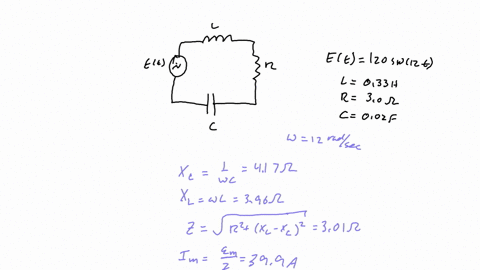 L
E(t)
R
C
E(t) = 120 sin(12t)
L = 0.33H
R = 3.0Ω
C = 0.02F
ω = 12 rad/sec
X_c = L/ωC = 4.17Ω
X_L = ωL = 3.96Ω
Z = √(R²+(X_L-X_C)²) = 3.01Ω
I_m = ε_m/Z = 39.9A